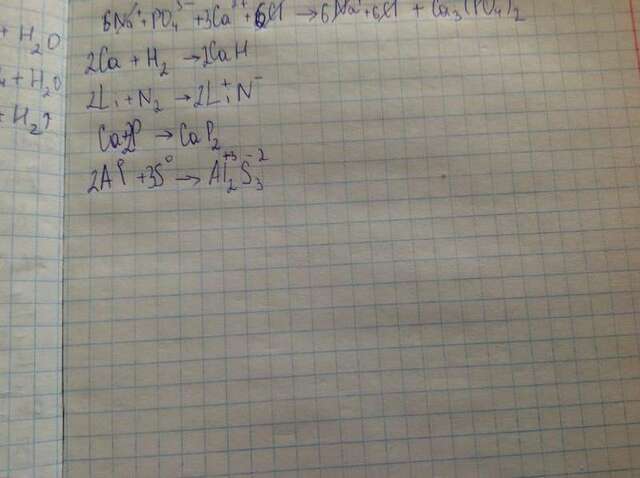 + H₂O
+ H₂O
+ H₂↑
6Na⁺ + PO₄³⁻ + 3Ca²⁺ + 6Cl → 6Na⁺ + 6Cl + Ca₃(PO₄)₂
2Ca + H₂ → 2CaH
2Li + N₂ → 2Li⁺N⁻
Ca + 2P → CaP₂
2Al⁰ + 3S⁰ → Al₂⁺³S₃⁻²